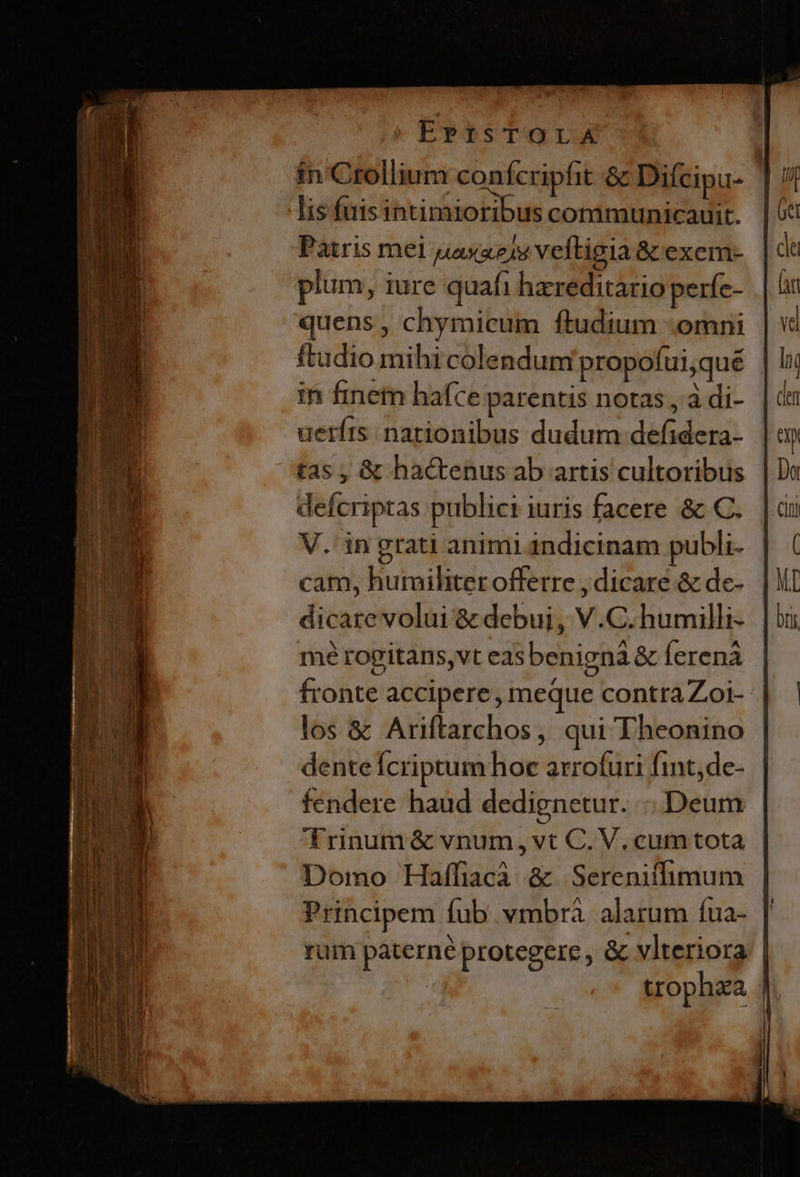 EPISTOLA
in Crollium conſcripſit & Diſcipu-
lis ſuis intimioribus communicauit.
Patris mei μακαρίȣ veſtigia & exem-
plum, iure quaſi hæreditario perſe-
quens, chymicum ſtudium omni
ſtudio mihi colendum propoſui, qué
in finem haſce parentis notas, à di-
uerſis nationibus dudum deſidera-
tas, & hactenus ab artis cultoribus
deſcriptas publici iuris facere & C.
V. in grati animi indicinam publi-
cam, humiliter offerre, dicare & de-
dicare volui & debui, V.C. humilli-
mè rogitans, vt eas benigná & ſerená
fronte accipere, meque contra Zoi-
los & Ariſtarchos, qui Theonino
dente ſcriptum hoc arroſuri ſint, de-
fendere haud dedignetur. Deum
Trinum & vnum, vt C. V. cum tota
Domo Haſſiacà & Sereniſſimum
Principem ſub vmbrà alarum ſua-
rum paternè protegere, & vlteriora
trophæa